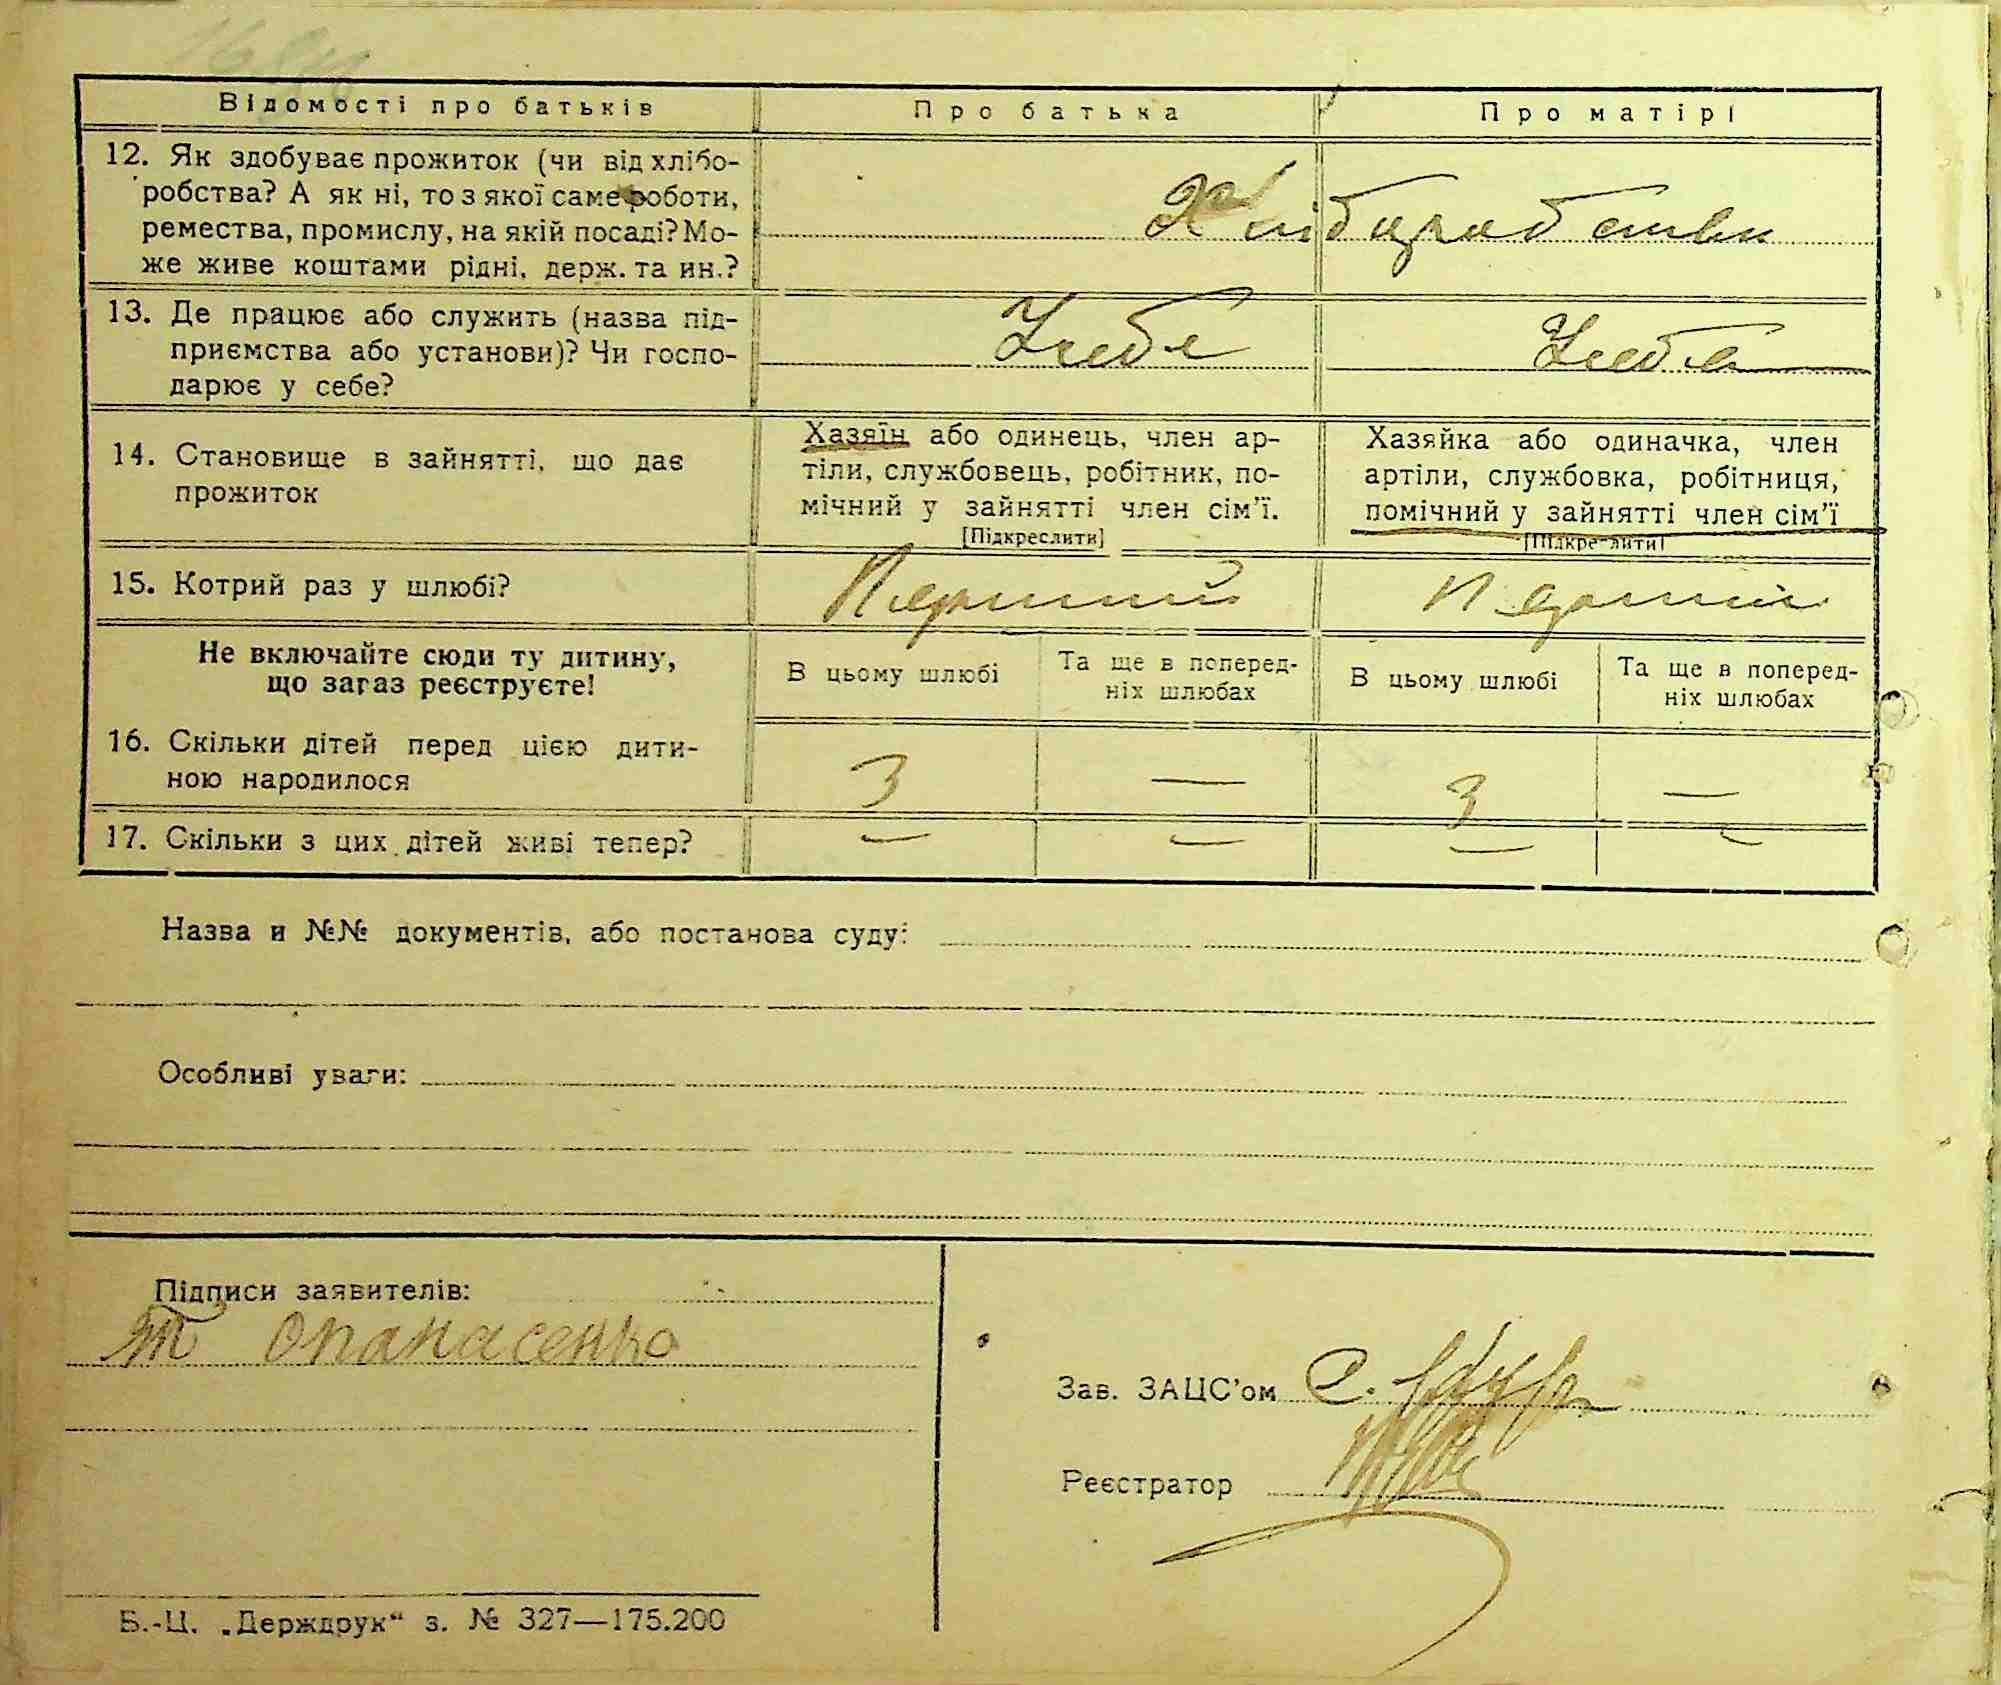 Відомості про батьків Про батька Про матірі
12. Як здобуває прожиток (чи від хлібо-
робства? А як ні, то з якої саме роботи,
ремества, промислу, на якій посаді? Мо-
же живе коштами рідні, держ. та ин.?
Хліборобство
13. Де працює або служить (назва під-
приємства або установи)? Чи госпо-
дарює у себе?
У себе У себе
14. Становище в зайнятті, що дає
прожиток
Хазяїн або одинець, член ар-
тіли, службовець, робітник, по-
мічний у зайнятті член сім'ї.
[Підкреслити]
Хазяйка або одиначка, член
артіли, службовка, робітниця,
помічний у зайнятті член сім'ї
[Підкреслити]
15. Котрий раз у шлюбі? Перший Перший
Не включайте сюди ту дитину,
що зараз реєструєте!
В цьому шлюбі Та ще в поперед-
ніх шлюбах
В цьому шлюбі Та ще в поперед-
ніх шлюбах
16. Скільки дітей перед цією дити-
ною народилося
3 — 3 —
17. Скільки з цих дітей живі тепер? — — — —
Назва и №№ документів, або постанова суду:
Особливі уваги:
Підписи заявителів:
Опанасенко
Зав. ЗАЦС'ом С.
Реєстратор
Б.-Ц. „Держдрук“ з. № 327—175.200